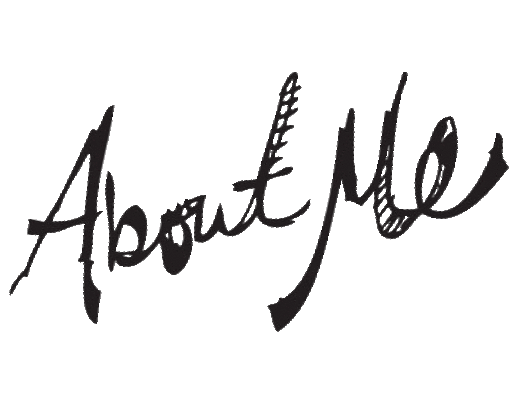 About Me